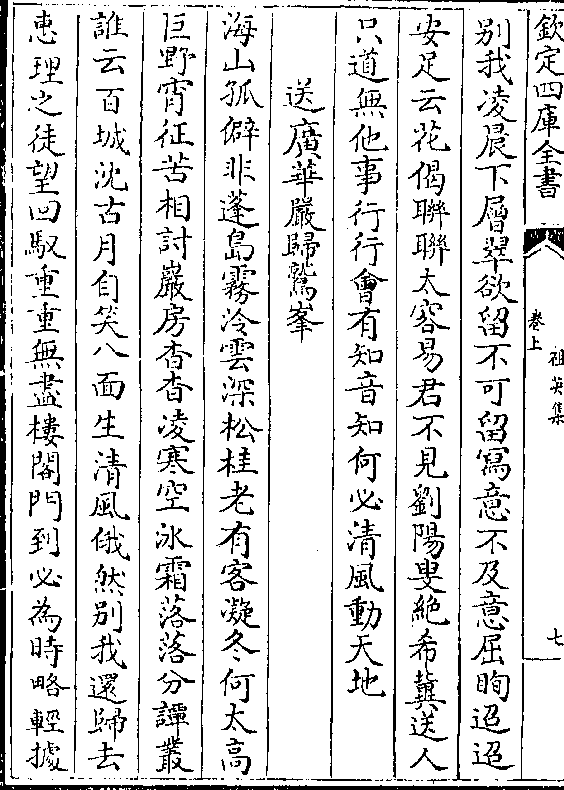 欽定四庫全書
祖英集
卷上
七
别我凌晨下層翠欲留不可留寫意不及意屈眴迢迢
安足云花偈聯聯太容易君不見劉陽叟絶希冀送人
只道無他事行行會有知音知何必清風動天地
送廣華嚴歸鷲峯
海山孤僻非蓬島霧冷雲深松桂老有客凝冬何太高
巨野宵征苦相討巖房杳杳凌寒空氷霜落落分譚叢
誰云百城沈古月自笑八面生清風俄然别我還歸去
恵理之徒望回馭重重無盡樓閣門到必為時略輕據